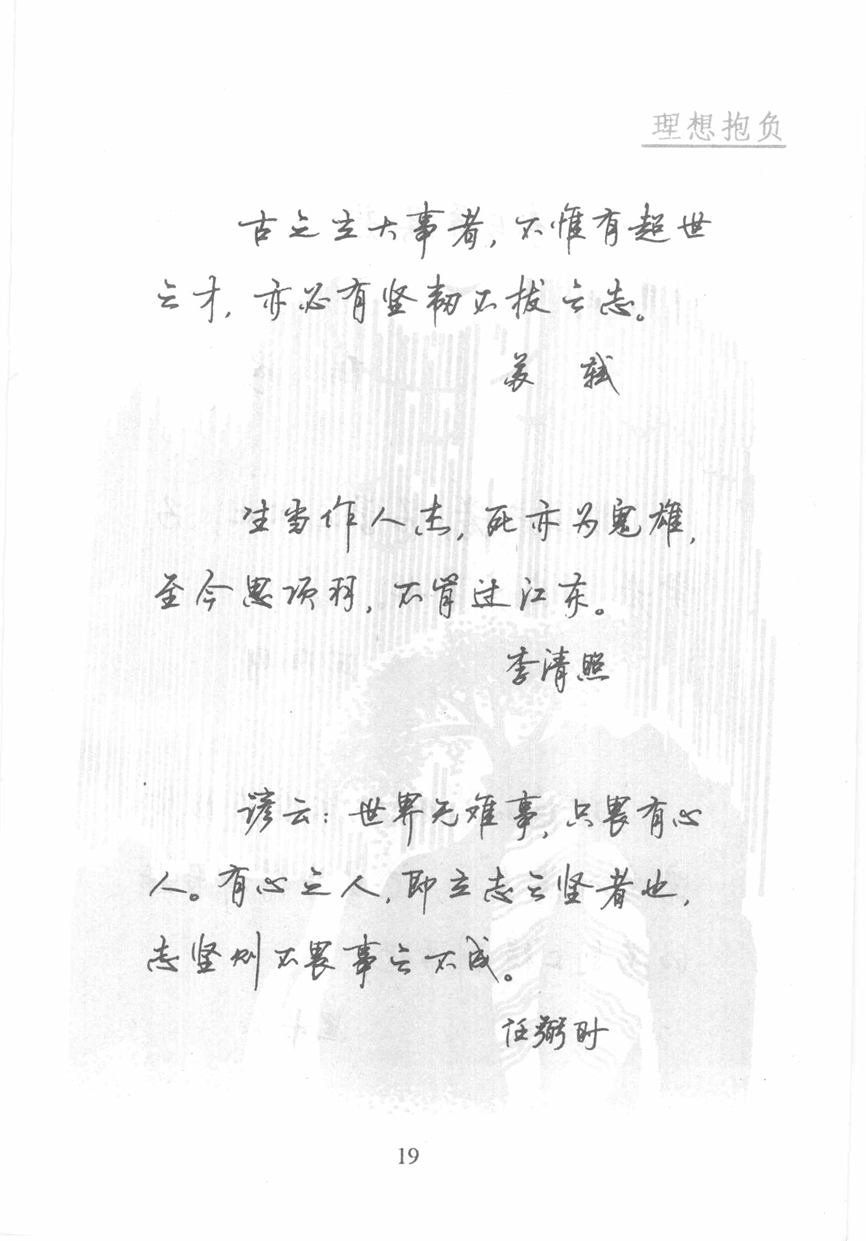 理想抱负
古之立大事者，不惟有超世
之才，亦必有坚韧不拔之志。
苏 轼
生当作人杰，死亦为鬼雄，
至今思项羽，不肯过江东。
李清照
谚云：世界无难事，只畏有心
人。有心之人，即立志之坚者也，
志坚则不畏事之不成。
任弼时
19